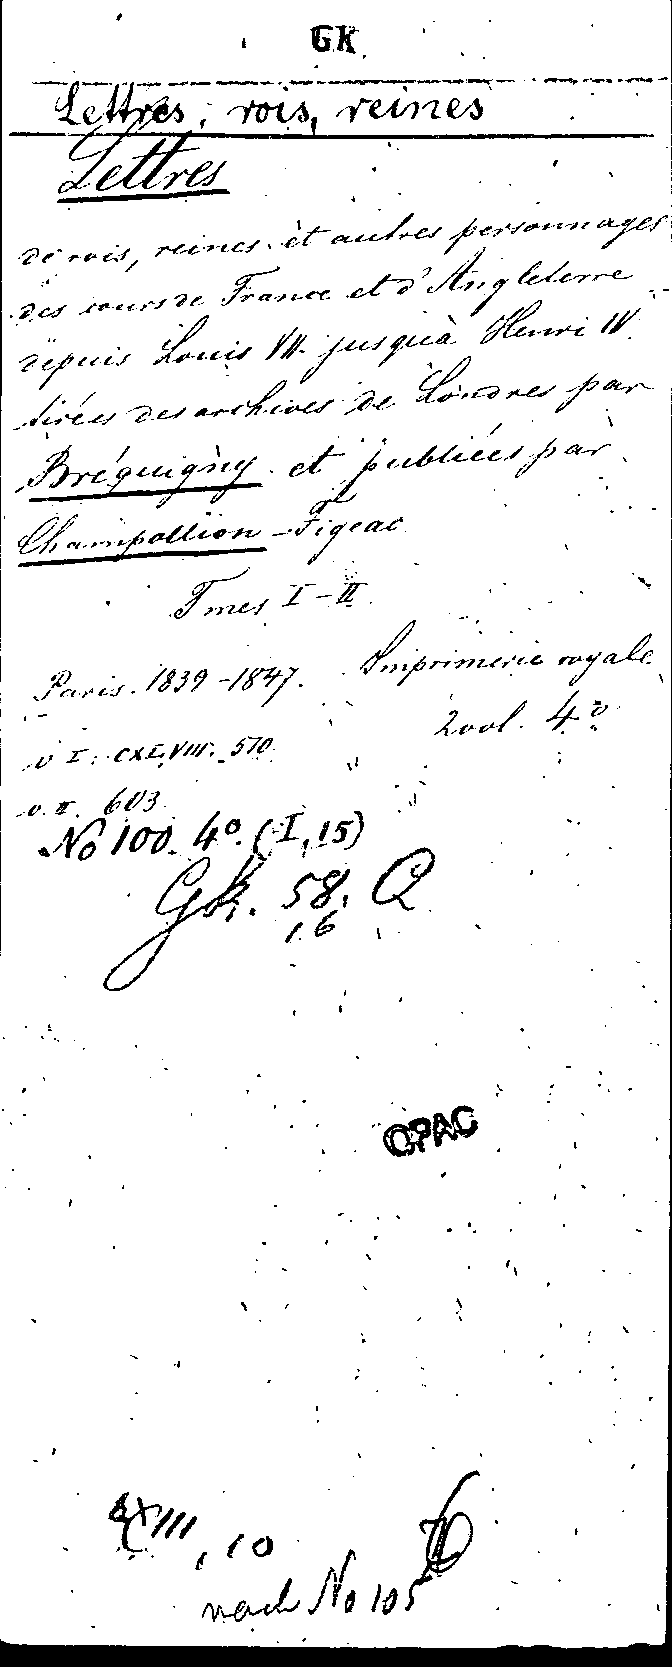 GK
Lettres, rois, reines
Lettres
de rois, reines et autres personnages
des cours de France et d'Angleterre
depuis Louis VII. jusqu'à Henri IV.
tirées des archives de Londres par
Bréquigny et publiées par
Champollion-Figeac
Tmes I-II.
Paris. 1839-1847. Imprimerie royale.
2 vol. 4°.
v I: CXLVIII. 510.
v. II. 603.
No 100. 4°. (I, 15)
Gk. 58. Q
16
OPAC
XIII, 10
nach No 105